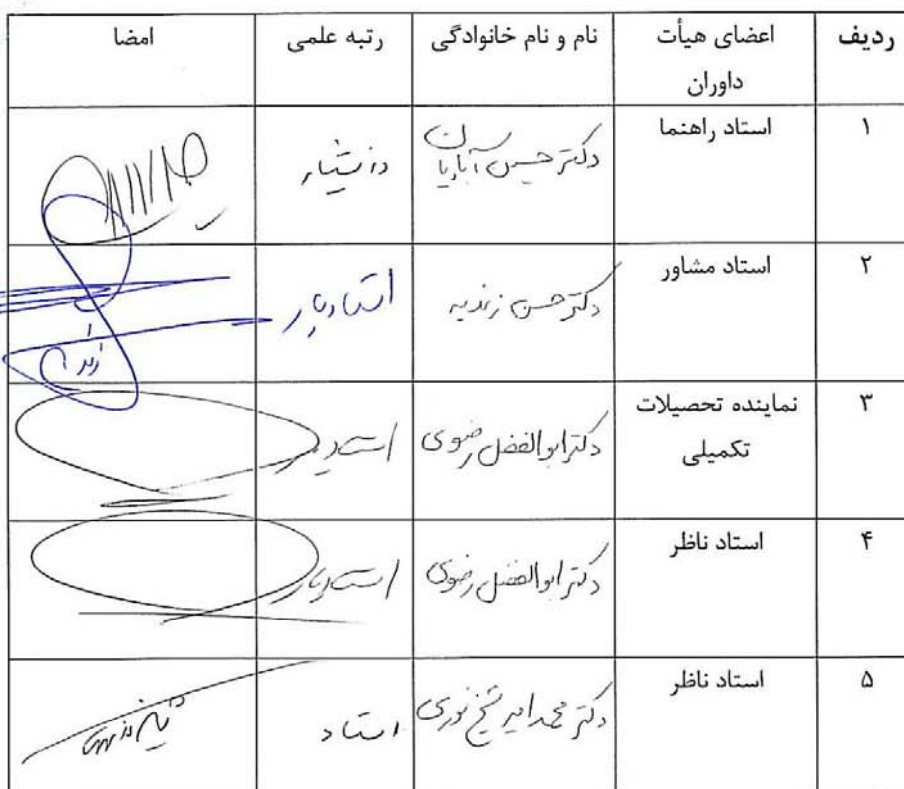 ردیف اعضای هیأت داوران نام و نام خانوادگی رتبه علمی امضا
۱ استاد راهنما دکتر حسین آبادیان دانشیار
۲ استاد مشاور دکتر حسن زندیه استادیار
۳ نماینده تحصیلات تکمیلی دکتر ابوالفضل رضوی استادیار
۴ استاد ناظر دکتر ابوالفضل رضوی استادیار
۵ استاد ناظر دکتر محمد امیر شیخ نوری استاد